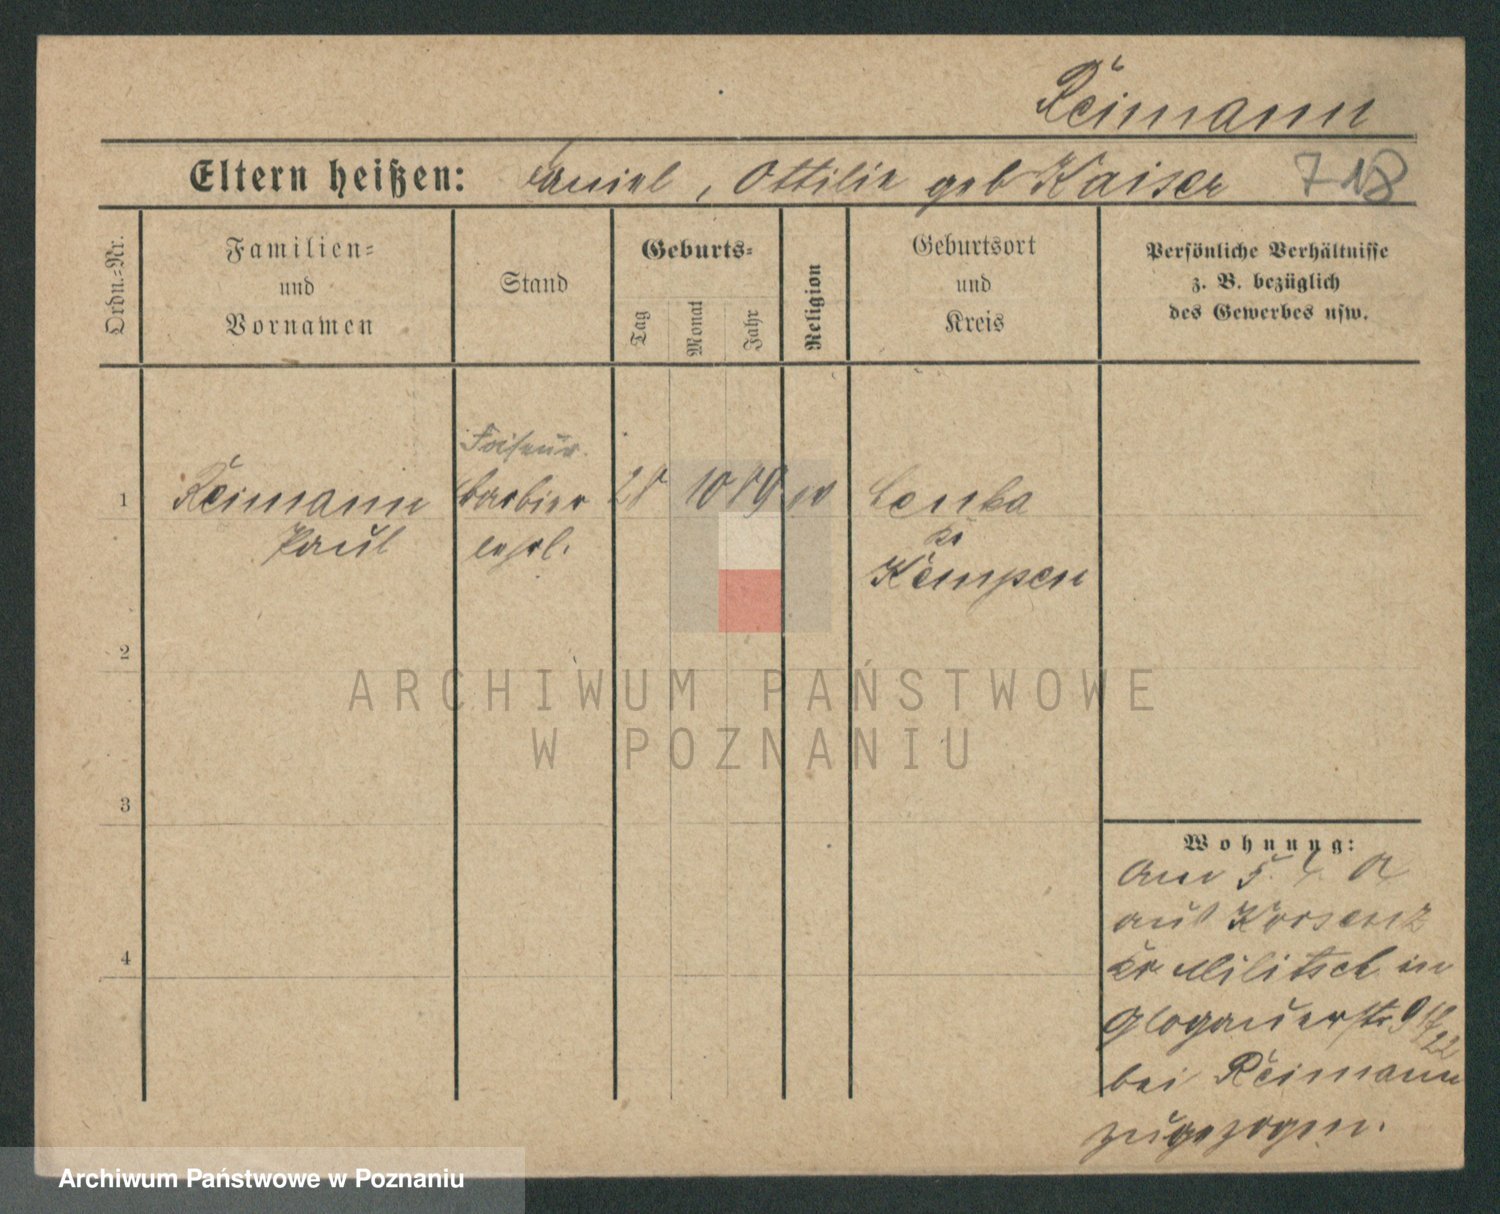 Reimann
Eltern heißen: Daniel, Ottilie geb Kaiser 718
Ordn.=Nr.
Familien=
und
Vornamen
Stand
Geburts=
Tag
Monat
Jahr
Religion
Geburtsort
und
Kreis
Persönliche Verhältnisse
z. B. bezüglich
des Gewerbes usw.
Friseur.
1 Reimann barbier 28 10 89 ev Lenka
Paul lehrl. Kr
Kempen
2
3
4
Wohnung:
Am 5. 4.
aus Korsenz
Kr Militsch in
Glogauerstr 9
bei Reimann
zugezogen.
ARCHIWUM PAŃSTWOWE
W POZNANIU
Archiwum Państwowe w Poznaniu